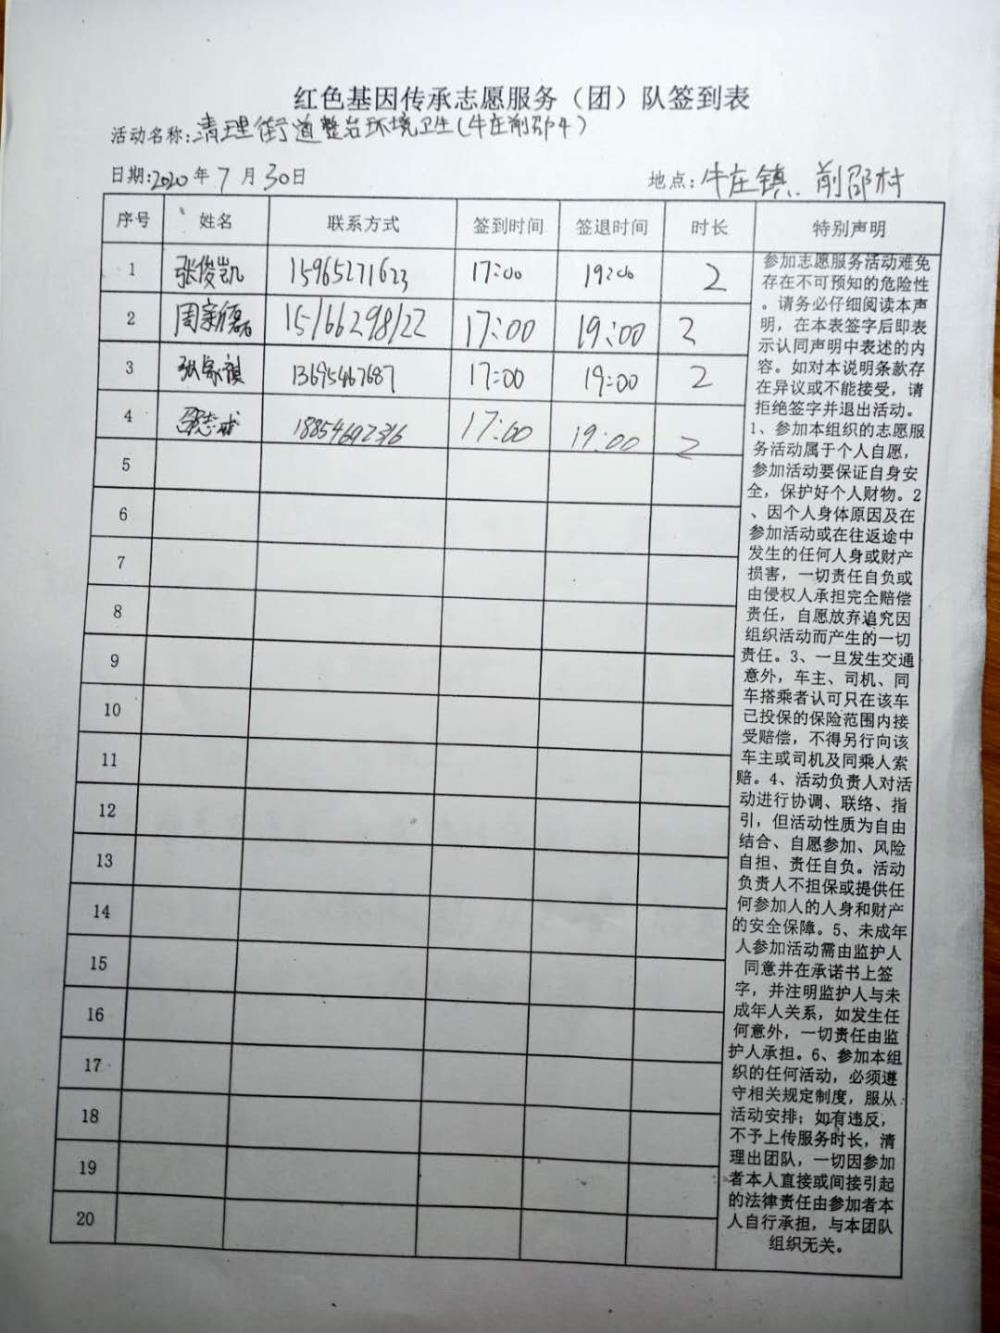 红色基因传承志愿服务（团）队签到表
活动名称:清理街道整治环境卫生(牛庄前邵村)
日期:2020年7月30日 地点:牛庄镇.前邵村
序号 姓名 联系方式 签到时间 签退时间 时长 特别声明
1 张俊凯 15965271623 17:00 19:00 2
2 15166298122 17:00 19:00 2
3 13695467687 17:00 19:00 2
4 18854692316 17:00 19:00 2
5
6
7
8
9
10
11
12
13
14
15
16
17
18
19
20
参加志愿服务活动难免
存在不可预知的危险性
。请务必仔细阅读本声
明，在本表签字后即表
示认同声明中表述的内
容。如对本说明条款存
在异议或不能接受，请
拒绝签字并退出活动。
1、参加本组织的志愿服
务活动属于个人自愿，
参加活动要保证自身安
全，保护好个人财物。2
、因个人身体原因及在
参加活动或在往返途中
发生的任何人身或财产
损害，一切责任自负或
由侵权人承担完全赔偿
责任，自愿放弃追究因
组织活动而产生的一切
责任。3、一旦发生交通
意外，车主、司机、同
车搭乘者认可只在该车
已投保的保险范围内接
受赔偿，不得另行向该
车主或司机及同乘人索
赔。4、活动负责人对活
动进行协调、联络、指
引，但活动性质为自由
结合、自愿参加、风险
自担、责任自负。活动
负责人不担保或提供任
何参加人的人身和财产
的安全保障。5、未成年
人参加活动需由监护人
同意并在承诺书上签
字，并注明监护人与未
成年人关系，如发生任
何意外，一切责任由监
护人承担。6、参加本组
织的任何活动，必须遵
守相关规定制度，服从
活动安排；如有违反，
不予上传服务时长，清
理出团队，一切因参加
者本人直接或间接引起
的法律责任由参加者本
人自行承担，与本团队
组织无关。